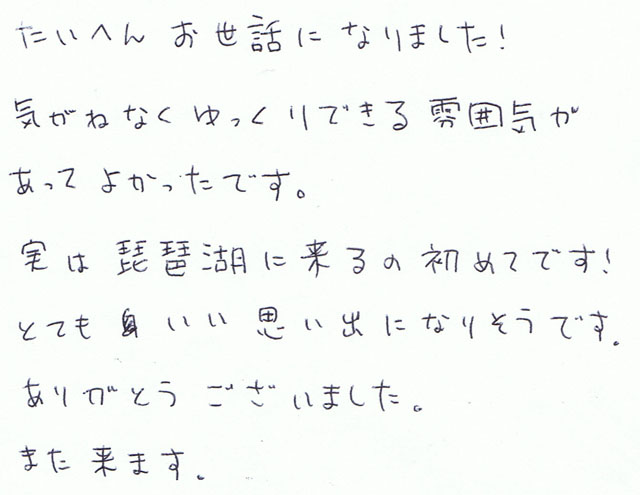 たいへん お世話に なりました!
気がねなく ゆっくりできる 雰囲気が
あって よかったです。
実は 琵琶湖に 来るの 初めてです!
とても いい 思い出に なりそうです。
ありがとう ございました。
また 来ます。